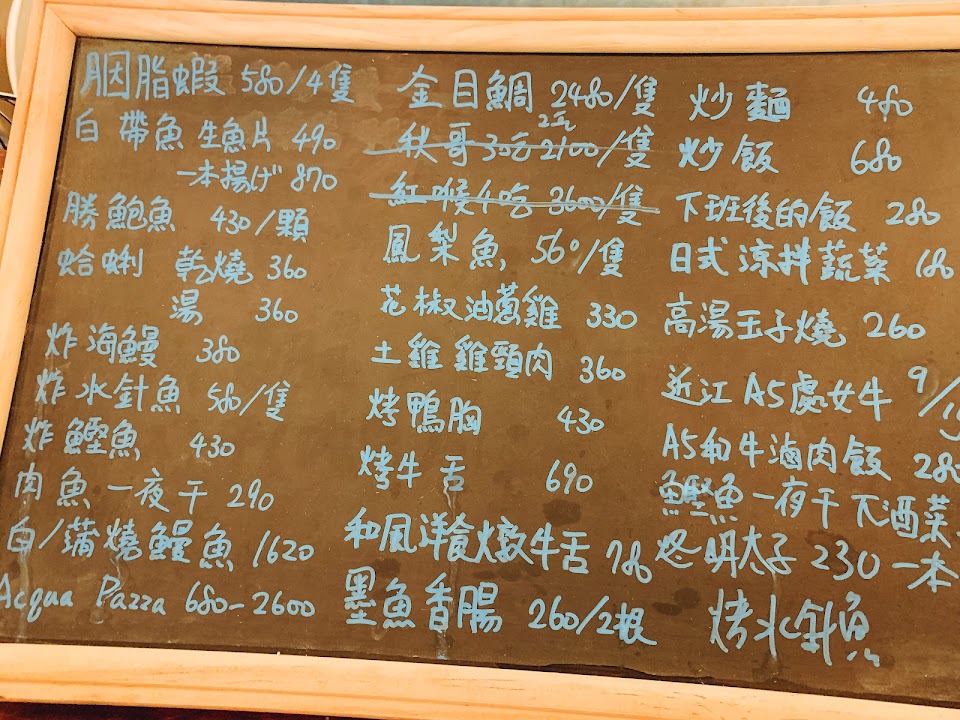 胭脂蝦 580/4隻
白帶魚生魚片 490
一本揚げ 870
勝鮑魚 430/顆
蛤蜊 乾燒 360
湯 360
炸海鰻 380
炸水針魚 580/隻
炸鰹魚 430
肉魚一夜干 290
白/蒲燒鰻魚 1620
Acqua Pazza 680-2600
金目鯛 2480/隻
秋哥 3吃 2100/隻
紅喉 吃 3600/隻
鳳梨魚 560/隻
花椒油蔥雞 330
土雞雞頸肉 360
烤鴨胸 430
烤牛舌 690
和風洋食燉牛舌 780
墨魚香腸 260/2根
炒麵 480
炒飯 680
下班後的飯 280
日式涼拌蔬菜 180
高湯玉子燒 260
近江A5處女牛 9/
A5和牛滷肉飯 280
鰹魚一夜干下酒菜
明太子 230 一本
烤水針魚